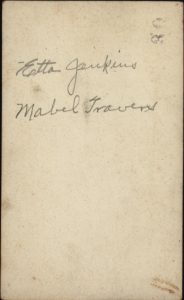 Etta Jenkins
Mabel Travers